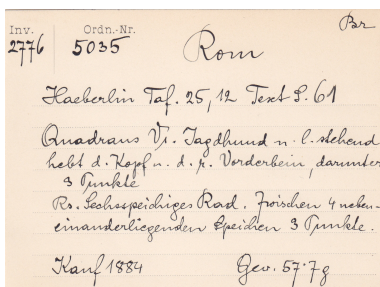 Br
Inv. Ordn.-Nr.
2776 5035
Rom
Haeberlin Taf. 25, 12 Text S. 61
Quadrans Vs. Jagdhund n. l. stehend
hebt d. Kopf u. d. r. Vorderbein, darunter
3 Punkte
Rs. Sechsspeichiges Rad. Zwischen 4 neben-
einanderliegenden Speichen 3 Punkte.
Kauf 1884 Gew. 57.7g